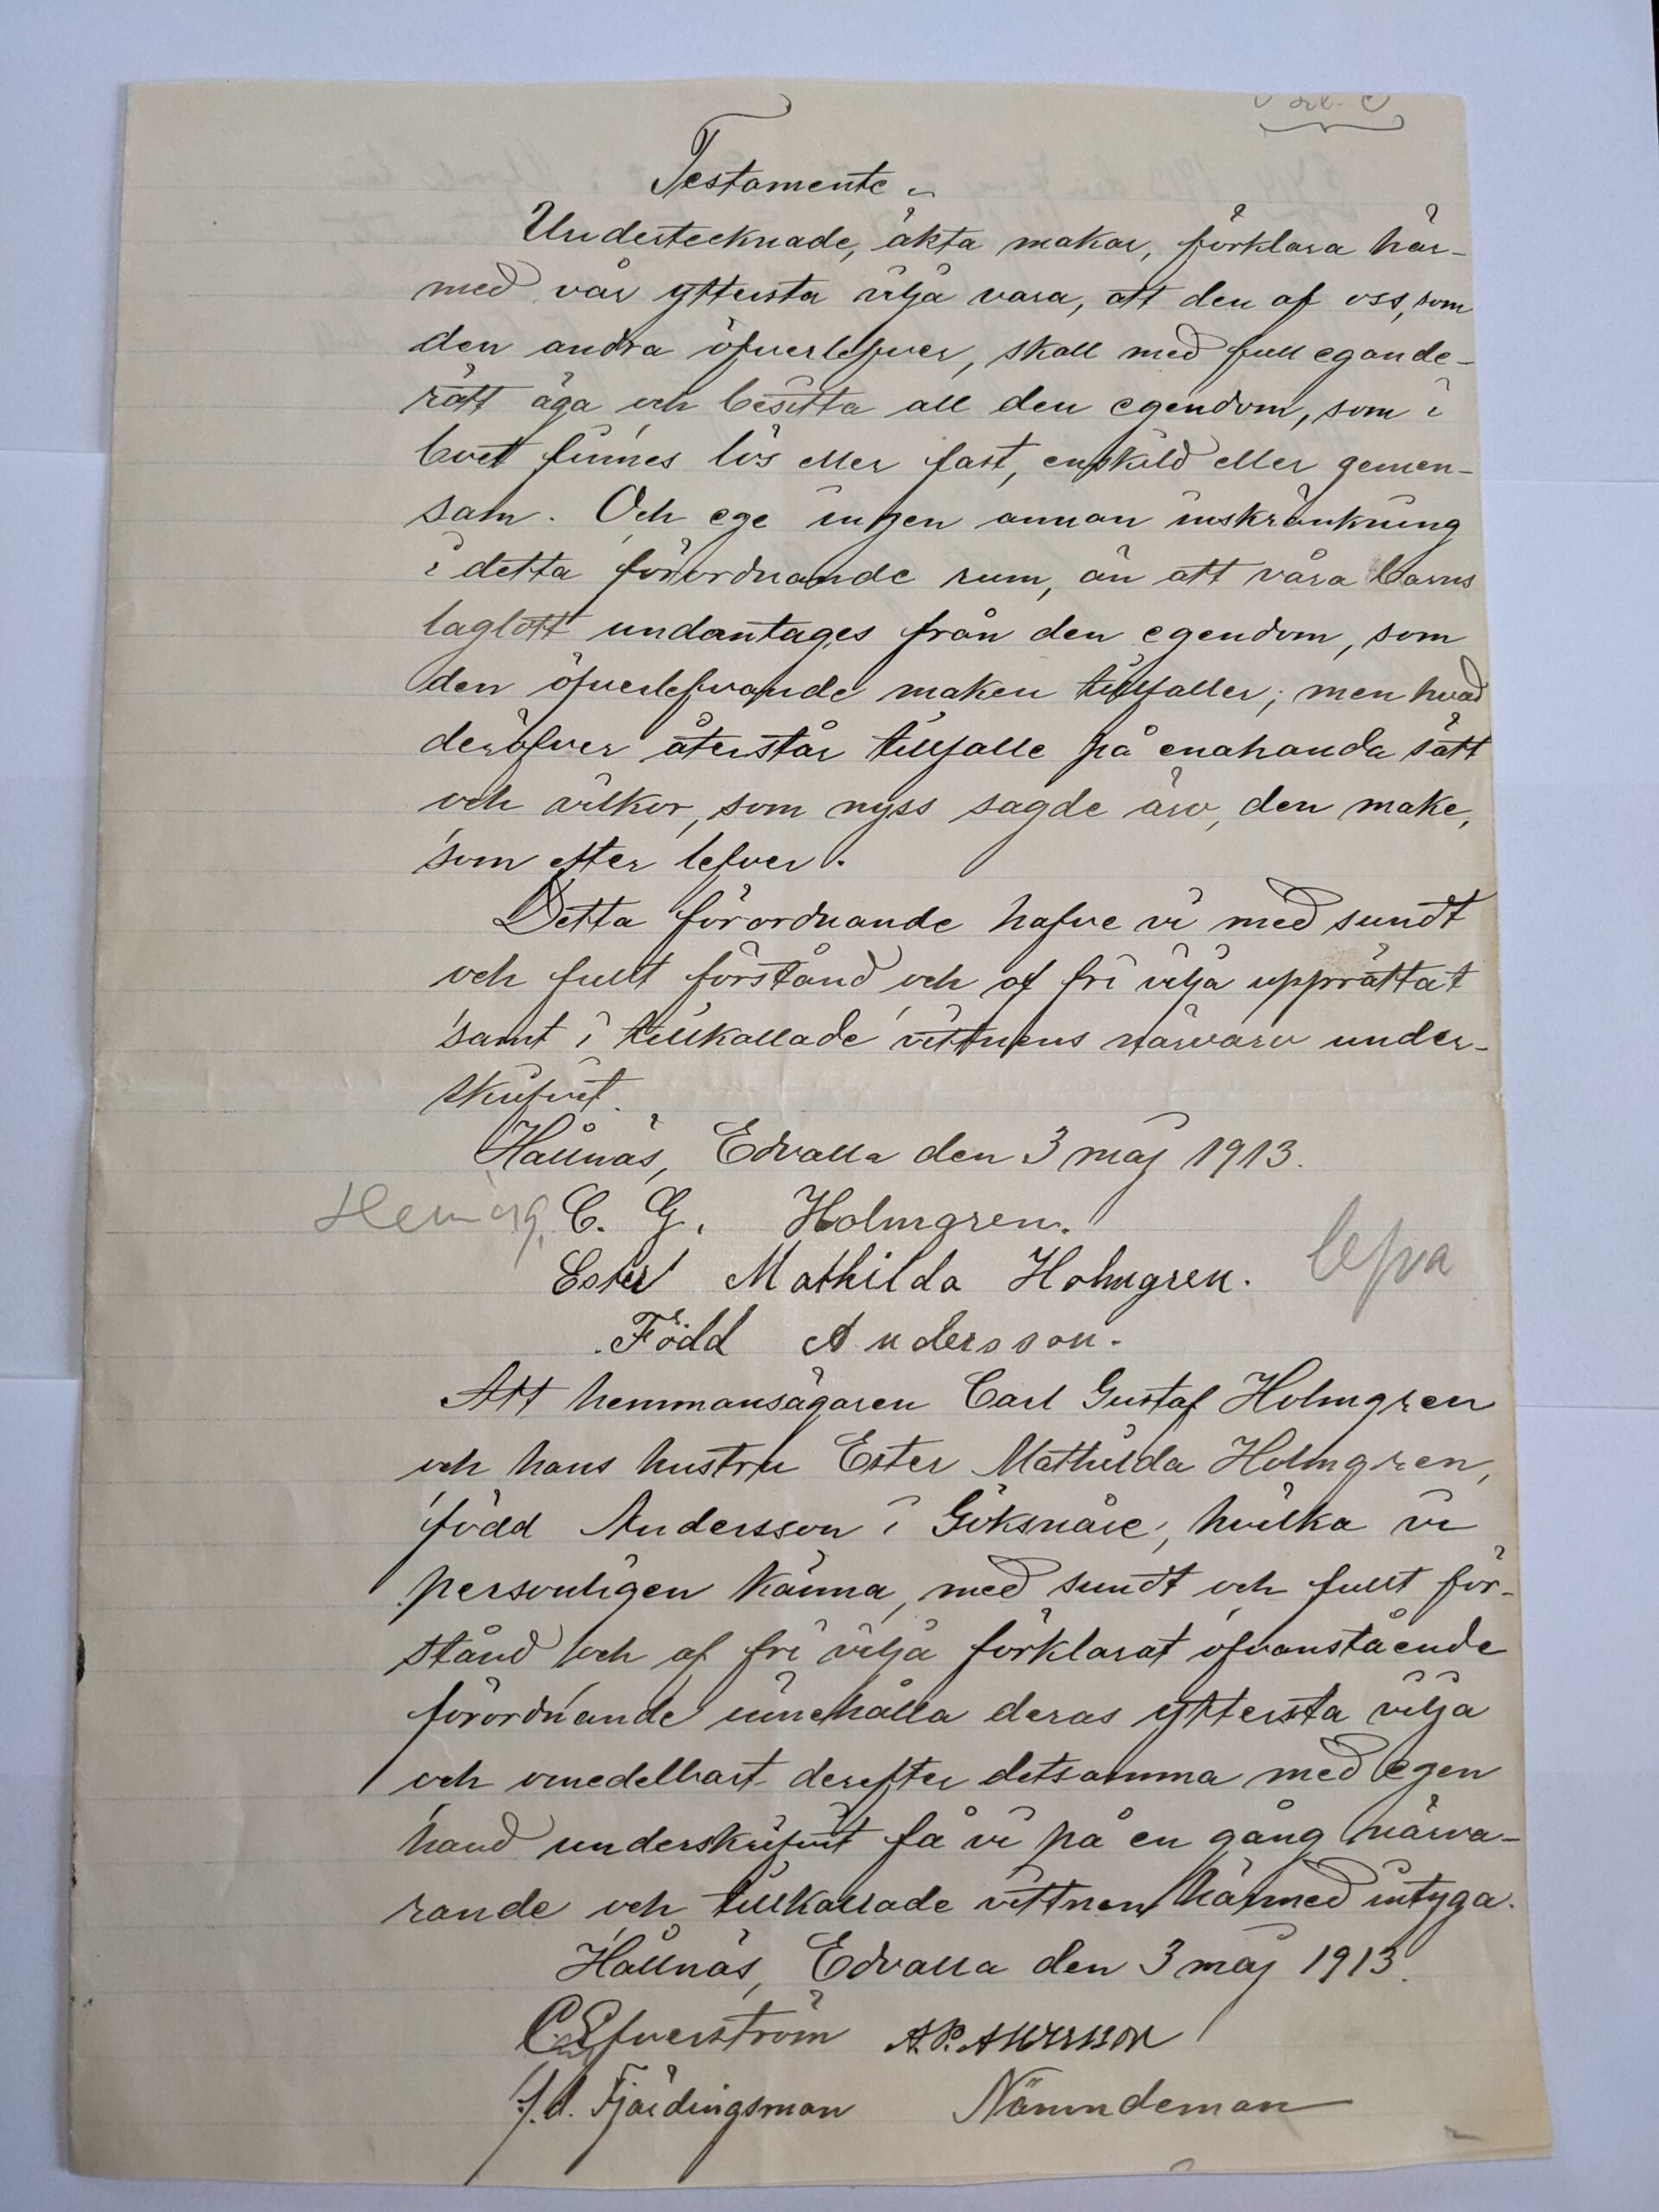 Testamente.
Undertecknade, äkta makar, förklara här-
med vår yttersta vilja vara, att den af oss, som
den andra öfverlefver, skall med full egande-
rätt äga och besitta all den egendom, som i
boet finnes lös eller fast, enskild eller gemen-
sam. Och ege ingen annan inskränkning
i detta förordnande rum, än att våra barns
laglott undantages från den egendom, som
den öfverlefvande maken tillfaller; men hvad
deröfver återstår tillfalle på enahanda sätt
och vilkor, som nyss sagde äro, den make,
som efter lefver.
Detta förordnande hafve vi med sundt
och fullt förstånd och af fri vilja upprättat
samt i tillkallade vittnens närvaro under-
skrifvit.
Hållnäs, Edvalla den 3 maj 1913.
C. G. Holmgren.
Ester Mathilda Holmgren. lefva
Född Andersson.
Att hemmansägaren Carl Gustaf Holmgren
och hans hustru Ester Mathilda Holmgren,
född Andersson i Göksnåre, hvilka vi
personligen känna, med sundt och fullt för-
stånd och af fri vilja förklarat ofvanstående
förordnande innehålla deras yttersta vilja
och omedelbart derefter detsamma med egen
hand underskrifvit få vi på en gång närva-
rande och tillkallade vittnen härmed intyga.
Hållnäs, Edvalla den 3 maj 1913.
Efverström A. P.
f.d. Fjärdingsman Nämndeman